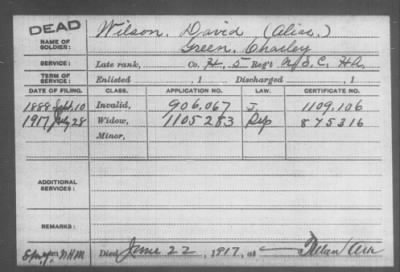 DEAD
NAME OF SOLDIER: Wilson, David (Alias,)
Green, Charley
SERVICE: Late rank, Co. H. 5 Reg't U.S.C. H.A.
TERM OF SERVICE: Enlisted , 1 Discharged , 1
DATE OF FILING. CLASS. APPLICATION NO. LAW. CERTIFICATE NO.
1888 Sept. 10 Invalid, 906,067 J. 1109,106
1917 July 28 Widow, 1105283 Rep 875316
Minor,
ADDITIONAL SERVICES:
REMARKS:
Died June 22, 1917, at Ark